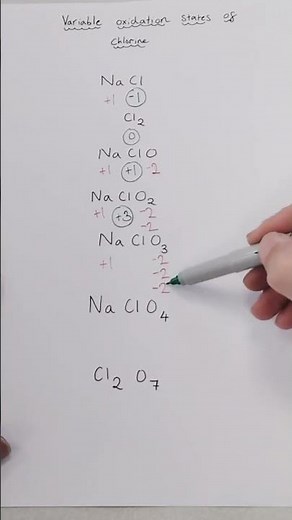 Variable oxidation states of
Chlorine
Na Cl
+1 -1
Cl2
0
Na Cl O
+1 +1 -2
Na Cl O2
+1 +3 -2
-2
Na Cl O3
+1 -2
-2
-2
Na Cl O4
Cl2 O7